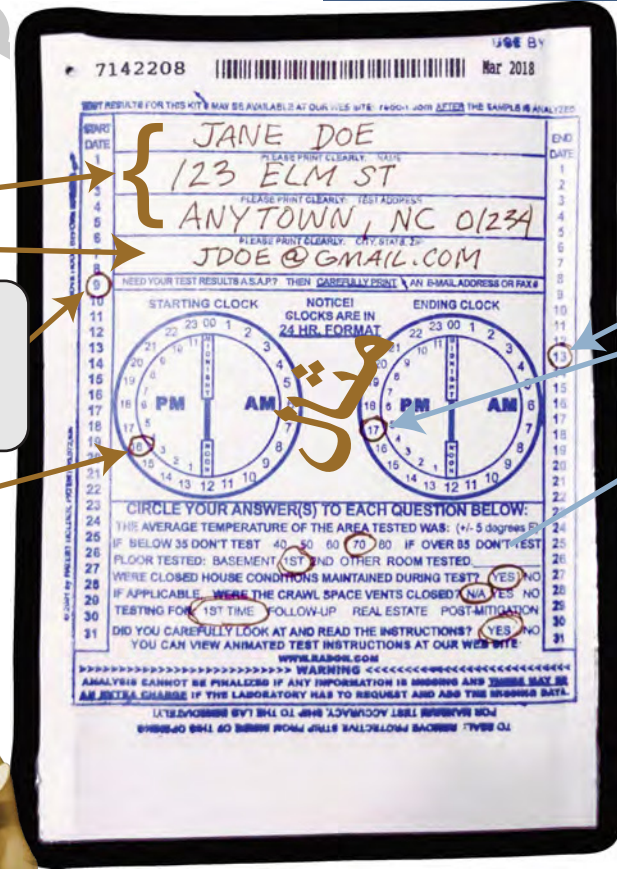 USE BY
7142208 Mar 2018
TEST RESULTS FOR THIS KIT MAY BE AVAILABLE AT OUR WEB SITE: radon.com AFTER THE SAMPLE IS ANALYZED
START DATE
END DATE
JANE DOE
PLEASE PRINT CLEARLY: NAME
123 ELM ST
PLEASE PRINT CLEARLY: TEST ADDRESS
ANYTOWN, NC 01234
PLEASE PRINT CLEARLY: CITY, STATE, ZIP
JDOE@GMAIL.COM
NEED YOUR TEST RESULTS A.S.A.P.? THEN CAREFULLY PRINT AN E-MAIL ADDRESS OR FAX#
1
2
3
4
5
6
7
8
9
10
11
12
13
14
15
16
17
18
19
20
21
22
23
24
25
26
27
28
29
30
31
STARTING CLOCK
NOTICE!
CLOCKS ARE IN
24 HR. FORMAT
ENDING CLOCK
MIDNIGHT
PM AM
NOON
MIDNIGHT
PM AM
NOON
مثال
CIRCLE YOUR ANSWER(S) TO EACH QUESTION BELOW:
THE AVERAGE TEMPERATURE OF THE AREA TESTED WAS: (+/- 5 degrees F)
IF BELOW 35 DON'T TEST 40 50 60 70 80 IF OVER 85 DON'T TEST
FLOOR TESTED: BASEMENT 1ST 2ND OTHER ROOM TESTED
WERE CLOSED HOUSE CONDITIONS MAINTAINED DURING TEST? YES NO
IF APPLICABLE, WERE THE CRAWL SPACE VENTS CLOSED? N/A YES NO
TESTING FOR: 1ST TIME FOLLOW-UP REAL ESTATE POST-MITIGATION
DID YOU CAREFULLY LOOK AT AND READ THE INSTRUCTIONS? YES NO
YOU CAN VIEW ANIMATED TEST INSTRUCTIONS AT OUR WEB SITE
WWW.RADON.COM
>>>>>>>>>>>>>>>>>>>>>>>> WARNING <<<<<<<<<<<<<<<<<<<<<<<<
ANALYSIS CANNOT BE FINALIZED IF ANY INFORMATION IS MISSING AND THERE MAY BE
AN EXTRA CHARGE IF THE LABORATORY HAS TO REQUEST AND ADD THE MISSING DATA.
FOR MAXIMUM TEST ACCURACY, SHIP TO THE LAB IMMEDIATELY!
TO SEAL: REMOVE PROTECTIVE STRIP FROM INSIDE OF THIS OPENING